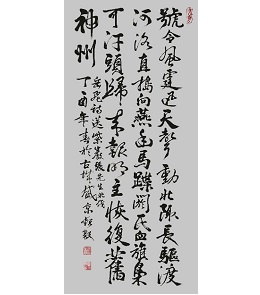 號令風霆迅天聲動北陬長驅渡
河洛直搗向燕幽馬蹀閼氏血旗梟
可汗頭歸來報明主恢復舊
神州
岳飛詩送紫巖張先生北伐
丁酉年書於